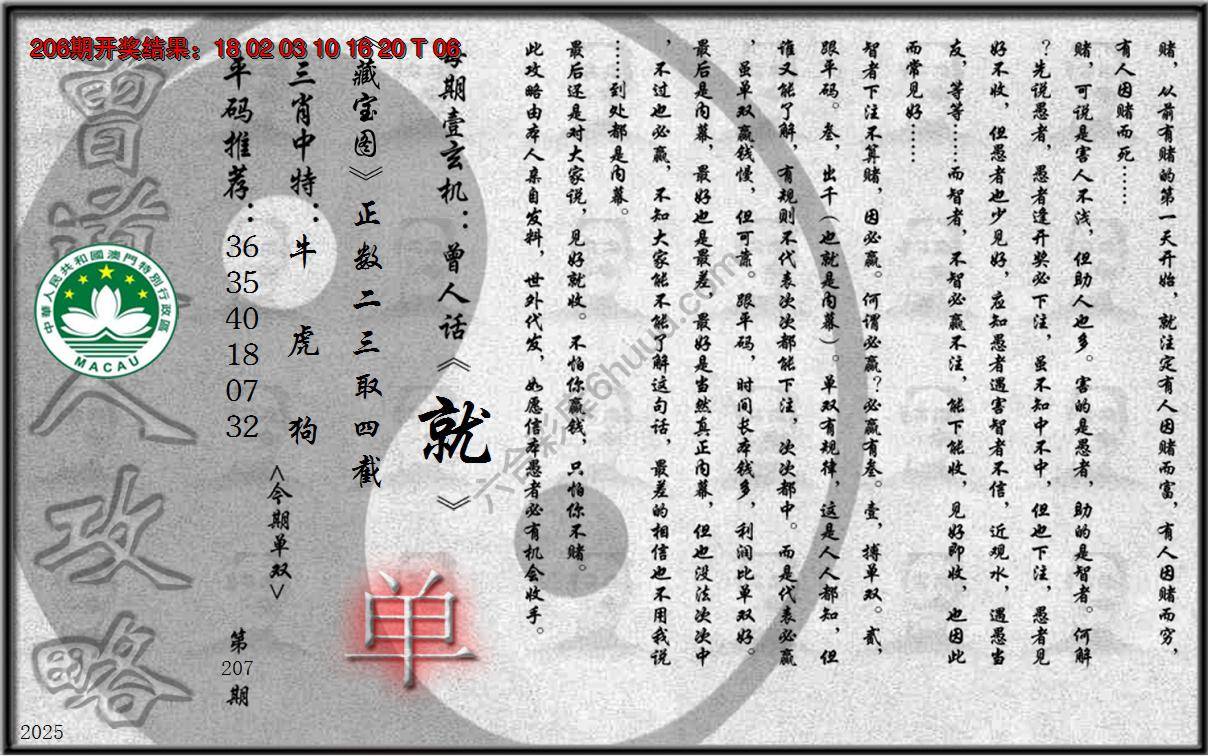 206期开奖结果：18 02 03 10 16 20 T 06
赌，从前有赌的第一天开始，就注定有人因赌而富，有人因赌而穷，
有人因赌而死……
赌，可说是害人不浅，但助人也多。害的是愚者，助的是智者。何解
？先说愚者，愚者逢开奖必下注，虽不知中不中，但也下注，愚者见
好不收，但愚者也少见好，应知愚者遇害智者不信，近观水，遇愚当
友，等等……而智者，不智必赢不注，能下能收，见好即收，也因此
而常见好……
智者下注不算赌，因必赢。何谓必赢？必赢有叁。壹，搏单双。贰，
跟平码。叁，出千（也就是内幕）。单双有规律，这是人人都知，但
谁又能了解，有规则不代表次次都能下注，次次都中。而是代表必赢
，虽单双赢钱慢，但可靠。跟平码，时间长本钱多，利润比单双好。
最后是内幕，最好也是最差，最好是当然真正内幕，但也没法次次中
，不过也必赢，不知大家能不能了解这句话，最差的相信也不用我说
……到处都是内幕。
最后还是对大家说，见好就收。不怕你赢钱，只怕你不赌。
此攻略由本人亲自发料，世外代发，如愿信本愚者必有机会收手。
每期壹玄机：曾人话《就》
《藏宝图》正数二三取四截
三肖中特：牛 虎 狗
平码推荐：
36
35
40
18
07
32
<今期单双>
单
第
207
期
曾道人攻略
中華人民共和國澳門特別行政區
MACAU
2025